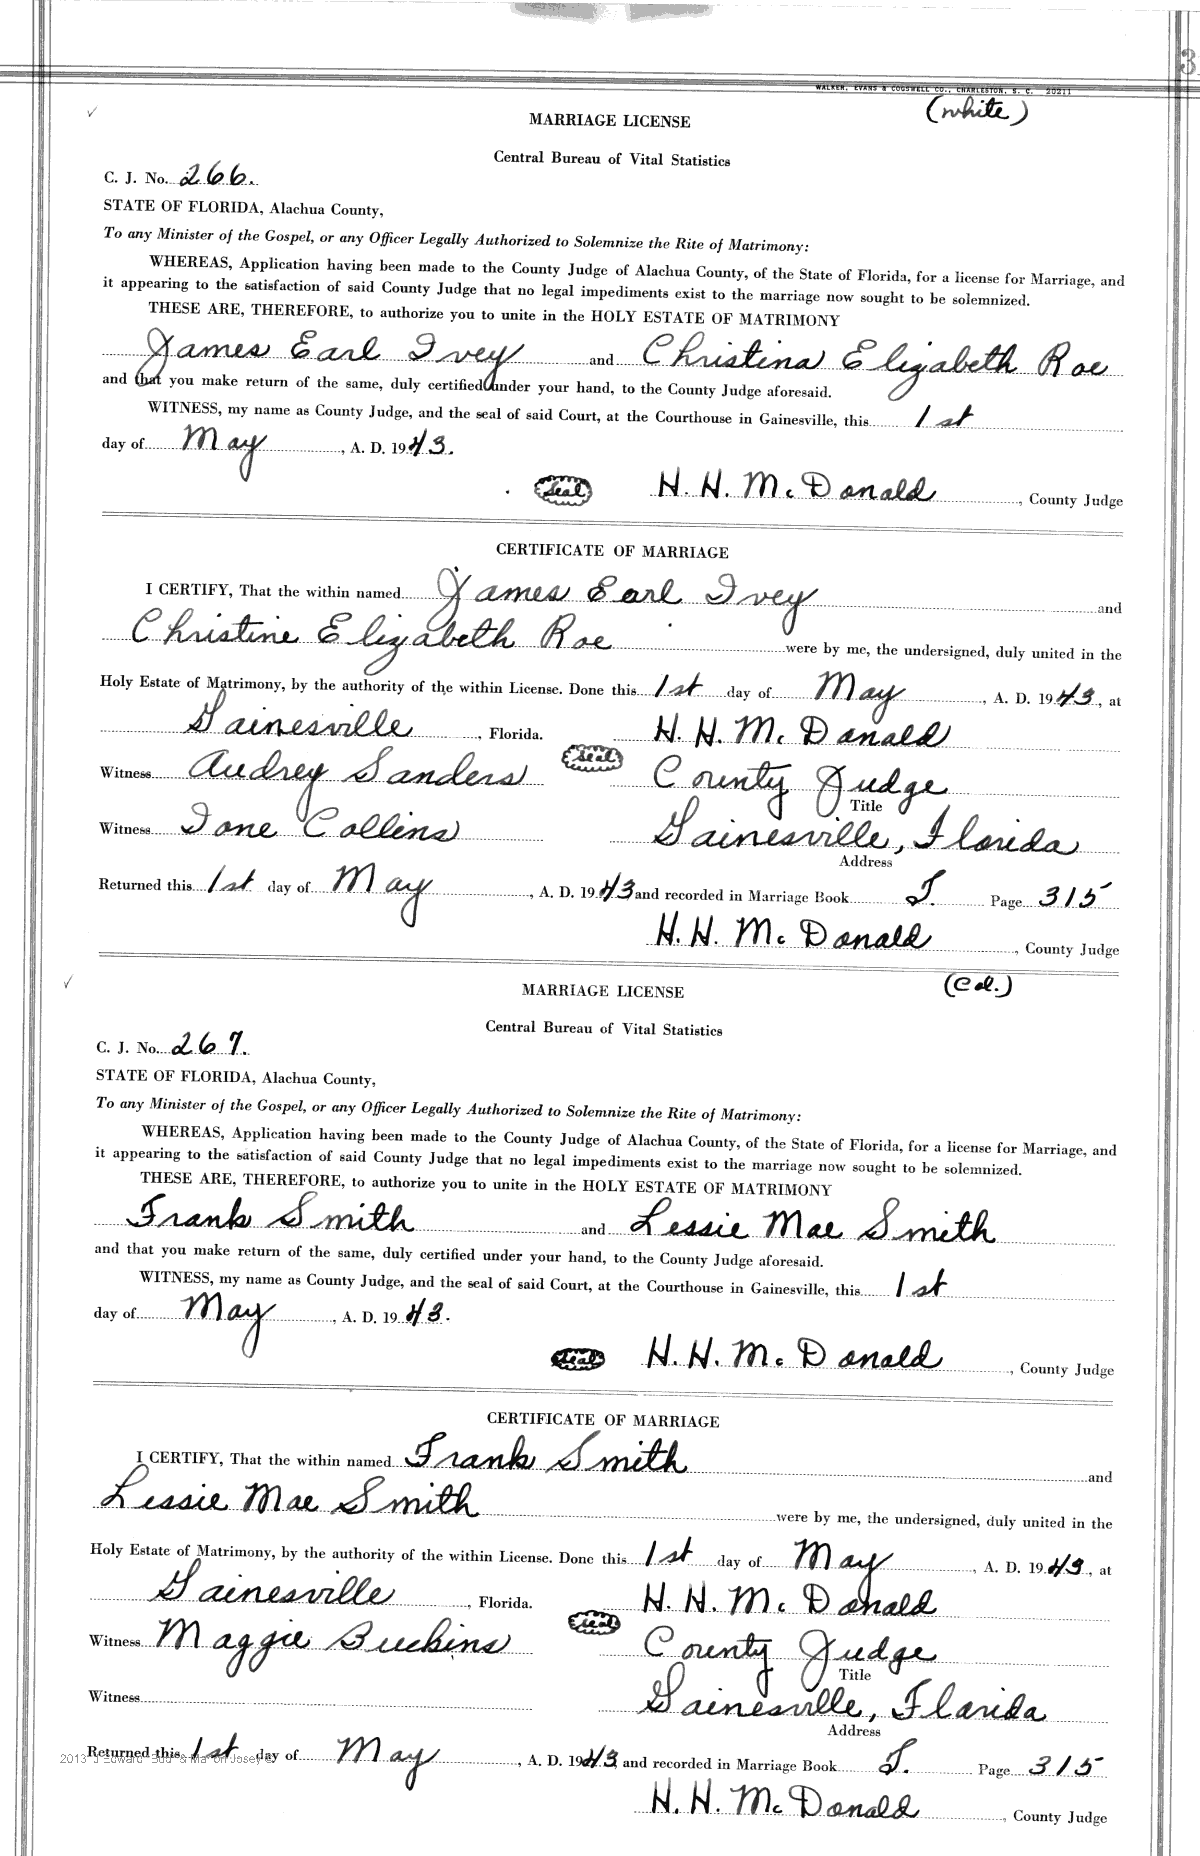 3
WALKER, EVANS & COGSWELL CO., CHARLESTON, S. C. 20211
(white)
MARRIAGE LICENSE
Central Bureau of Vital Statistics
C. J. No. 266.
STATE OF FLORIDA, Alachua County,
To any Minister of the Gospel, or any Officer Legally Authorized to Solemnize the Rite of Matrimony:
WHEREAS, Application having been made to the County Judge of Alachua County, of the State of Florida, for a license for Marriage, and
it appearing to the satisfaction of said County Judge that no legal impediments exist to the marriage now sought to be solemnized.
THESE ARE, THEREFORE, to authorize you to unite in the HOLY ESTATE OF MATRIMONY
James Earl Ivey and Christina Elizabeth Roe
and that you make return of the same, duly certified under your hand, to the County Judge aforesaid.
WITNESS, my name as County Judge, and the seal of said Court, at the Courthouse in Gainesville, this 1st
day of May, A. D. 1943.
Seal H. H. McDonald, County Judge
CERTIFICATE OF MARRIAGE
I CERTIFY, That the within named James Earl Ivey and
Christine Elizabeth Roe were by me, the undersigned, duly united in the
Holy Estate of Matrimony, by the authority of the within License. Done this 1st day of May, A. D. 1943, at
Gainesville, Florida. H. H. McDonald
Witness Audrey Sanders Seal County Judge
Title
Witness Ione Collins Gainesville, Florida
Address
Returned this 1st day of May, A. D. 1943 and recorded in Marriage Book T. Page 315
H. H. McDonald, County Judge
(Col.)
MARRIAGE LICENSE
Central Bureau of Vital Statistics
C. J. No. 267.
STATE OF FLORIDA, Alachua County,
To any Minister of the Gospel, or any Officer Legally Authorized to Solemnize the Rite of Matrimony:
WHEREAS, Application having been made to the County Judge of Alachua County, of the State of Florida, for a license for Marriage, and
it appearing to the satisfaction of said County Judge that no legal impediments exist to the marriage now sought to be solemnized.
THESE ARE, THEREFORE, to authorize you to unite in the HOLY ESTATE OF MATRIMONY
Frank Smith and Lessie Mae Smith
and that you make return of the same, duly certified under your hand, to the County Judge aforesaid.
WITNESS, my name as County Judge, and the seal of said Court, at the Courthouse in Gainesville, this 1st
day of May, A. D. 1943.
Seal H. H. McDonald, County Judge
CERTIFICATE OF MARRIAGE
I CERTIFY, That the within named Frank Smith and
Lessie Mae Smith were by me, the undersigned, duly united in the
Holy Estate of Matrimony, by the authority of the within License. Done this 1st day of May, A. D. 1943, at
Gainesville, Florida. H. H. McDonald
Witness Maggie Buckins Seal County Judge
Title
Witness Gainesville, Florida
Address
Returned this 1st day of May, A. D. 1943 and recorded in Marriage Book T. Page 315
2013 J Edward "Bud" & Marion Josey
H. H. McDonald, County Judge